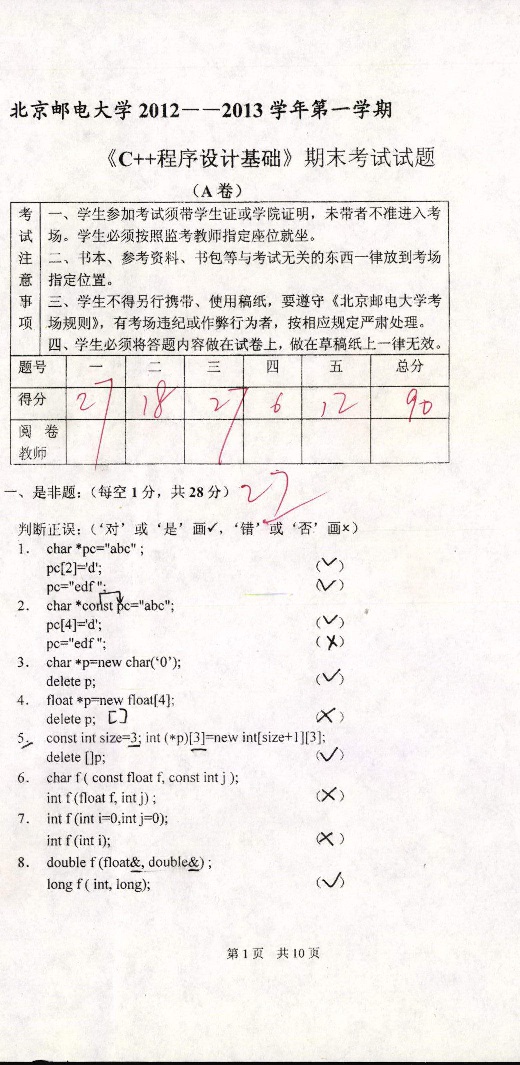 北京邮电大学 2012——2013 学年第一学期
《C++程序设计基础》期末考试试题
（A 卷）
考试注意事项
一、学生参加考试须带学生证或学院证明，未带者不准进入考
场。学生必须按照监考教师指定座位就坐。
二、书本、参考资料、书包等与考试无关的东西一律放到考场
指定位置。
三、学生不得另行携带、使用稿纸，要遵守《北京邮电大学考
场规则》，有考场违纪或作弊行为者，按相应规定严肃处理。
四、学生必须将答题内容做在试卷上，做在草稿纸上一律无效。
题号 一 二 三 四 五 总分
得分 27 18 27 6 12 90
阅 卷
教师
一、是非题：（每空 1 分，共 28 分） 27
判断正误：（‘对’或‘是’画✓，‘错’或‘否’画×）
1. char *pc="abc" ;
pc[2]='d'; (✓)
pc="edf "; (✓)
2. char *const pc="abc";
pc[4]='d'; (✓)
pc="edf "; (×)
3. char *p=new char(‘0’);
delete p; (✓)
4. float *p=new float[4];
delete p; [] (×)
5. const int size=3; int (*p)[3]=new int[size+1][3];
delete []p; (✓)
6. char f ( const float f, const int j );
int f (float f, int j) ; (×)
7. int f (int i=0,int j=0);
int f (int i); (×)
8. double f (float&, double&) ;
long f ( int, long); (✓)
第 1 页 共 10 页